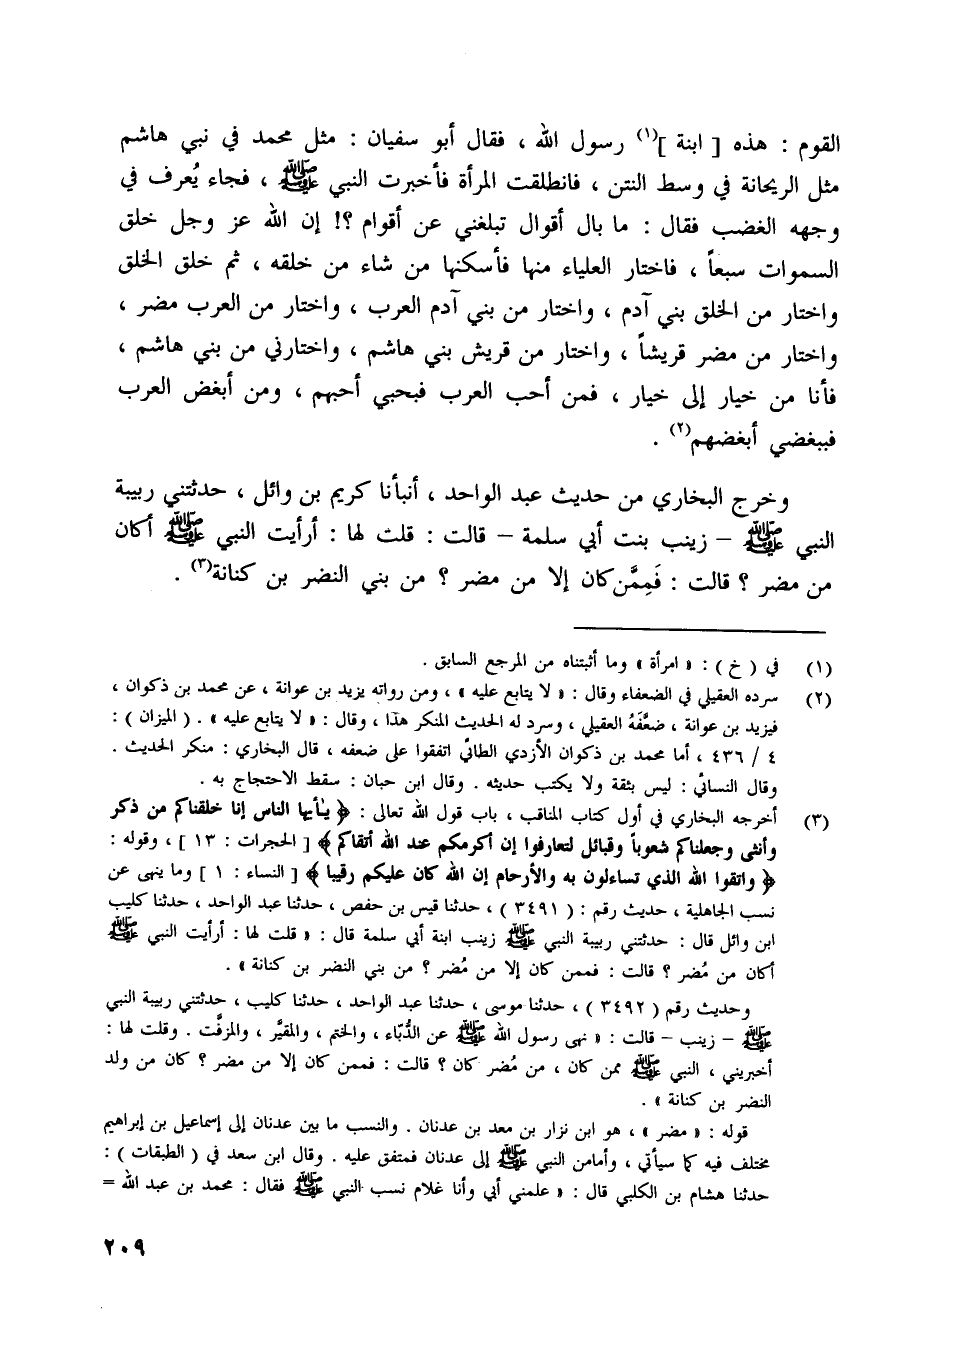 القوم : هذه [ ابنة ](١) رسول الله ، فقال أبو سفيان : مثل محمد في نبي هاشم
مثل الريحانة في وسط النتن ، فانطلقت المرأة فأخبرت النبي ﷺ ، فجاء يُعرف في
وجهه الغضب فقال : ما بال أقوال تبلغني عن أقوام ؟! إن الله عز وجل خلق
السموات سبعاً ، فاختار العلياء منها فأسكنها من شاء من خلقه ، ثم خلق الخلق
واختار من الخلق بني آدم ، واختار من بني آدم العرب ، واختار من العرب مضر ،
واختار من مضر قريشاً ، واختار من قريش بني هاشم ، واختارني من بني هاشم ،
فأنا من خيار إلى خيار ، فمن أحب العرب فبحبي أحبهم ، ومن أبغض العرب
فببغضي أبغضهم(٢) .
وخرج البخاري من حديث عبد الواحد ، أنبأنا كريم بن وائل ، حدثتني ربيبة
النبي ﷺ – زينب بنت أبي سلمة – قالت : قلت لها : أرأيت النبي ﷺ أكان
من مضر ؟ قالت : فَمِمَّن كان إلا من مضر ؟ من بني النضر بن كنانة(٣) .
(١) في ( خ ) : « امرأة » وما أثبتناه من المرجع السابق .
(٢) سرده العقيلي في الضعفاء وقال : « لا يتابع عليه » ، ومن رواته يزيد بن عوانة ، عن محمد بن ذكوان ،
فيزيد بن عوانة ، ضعَّفَهُ العقيلي ، وسرد له الحديث المنكر هذا ، وقال : « لا يتابع عليه » . ( الميزان ) :
٤ / ٤٣٦ ، أما محمد بن ذكوان الأزدي الطائي اتفقوا على ضعفه ، قال البخاري : منكر الحديث .
وقال النسائي : ليس بثقة ولا يكتب حديثه . وقال ابن حبان : سقط الاحتجاج به .
(٣) أخرجه البخاري في أول كتاب المناقب ، باب قول الله تعالى : ﴿ يأيها الناس إنا خلقناكم من ذكر
وأنثى وجعلناكم شعوباً وقبائل لتعارفوا إن أكرمكم عند الله أتقاكم ﴾ [ الحجرات : ١٣ ] ، وقوله :
﴿ واتقوا الله الذي تساءلون به والأرحام إن الله كان عليكم رقيبا ﴾ [ النساء : ١ ] وما ينهى عن
نسب الجاهلية ، حديث رقم : ( ٣٤٩١ ) ، حدثنا قيس بن حفص ، حدثنا عبد الواحد ، حدثنا كليب
ابن وائل قال : حدثتني ربيبة النبي ﷺ زينب ابنة أبي سلمة قال : « قلت لها : أرأيت النبي ﷺ
أكان من مُضر ؟ قالت : فممن كان إلا من مُضر ؟ من بني النضر بن كنانة » .
وحديث رقم ( ٣٤٩٢ ) ، حدثنا موسى ، حدثنا عبد الواحد ، حدثنا كليب ، حدثتني ربيبة النبي
ﷺ – زينب – قالت : « نهى رسول الله ﷺ عن الدُّبّاء ، والختم ، والمقيَّر ، والمزفَّت . وقلت لها :
أخبريني ، النبي ﷺ ممن كان ، من مُضر كان ؟ قالت : فممن كان إلا من مضر ؟ كان من ولد
النضر بن كنانة » .
قوله : « مضر » ، هو ابن نزار بن معد بن عدنان . والنسب ما بين عدنان إلى إسماعيل بن إبراهيم
مختلف فيه كما سيأتي ، وأمامن النبي ﷺ إلى عدنان فمتفق عليه . وقال ابن سعد في ( الطبقات ) :
حدثنا هشام بن الكلبي قال : « علمني أبي وأنا غلام نسب النبي ﷺ فقال : محمد بن عبد الله =
٢٠٩